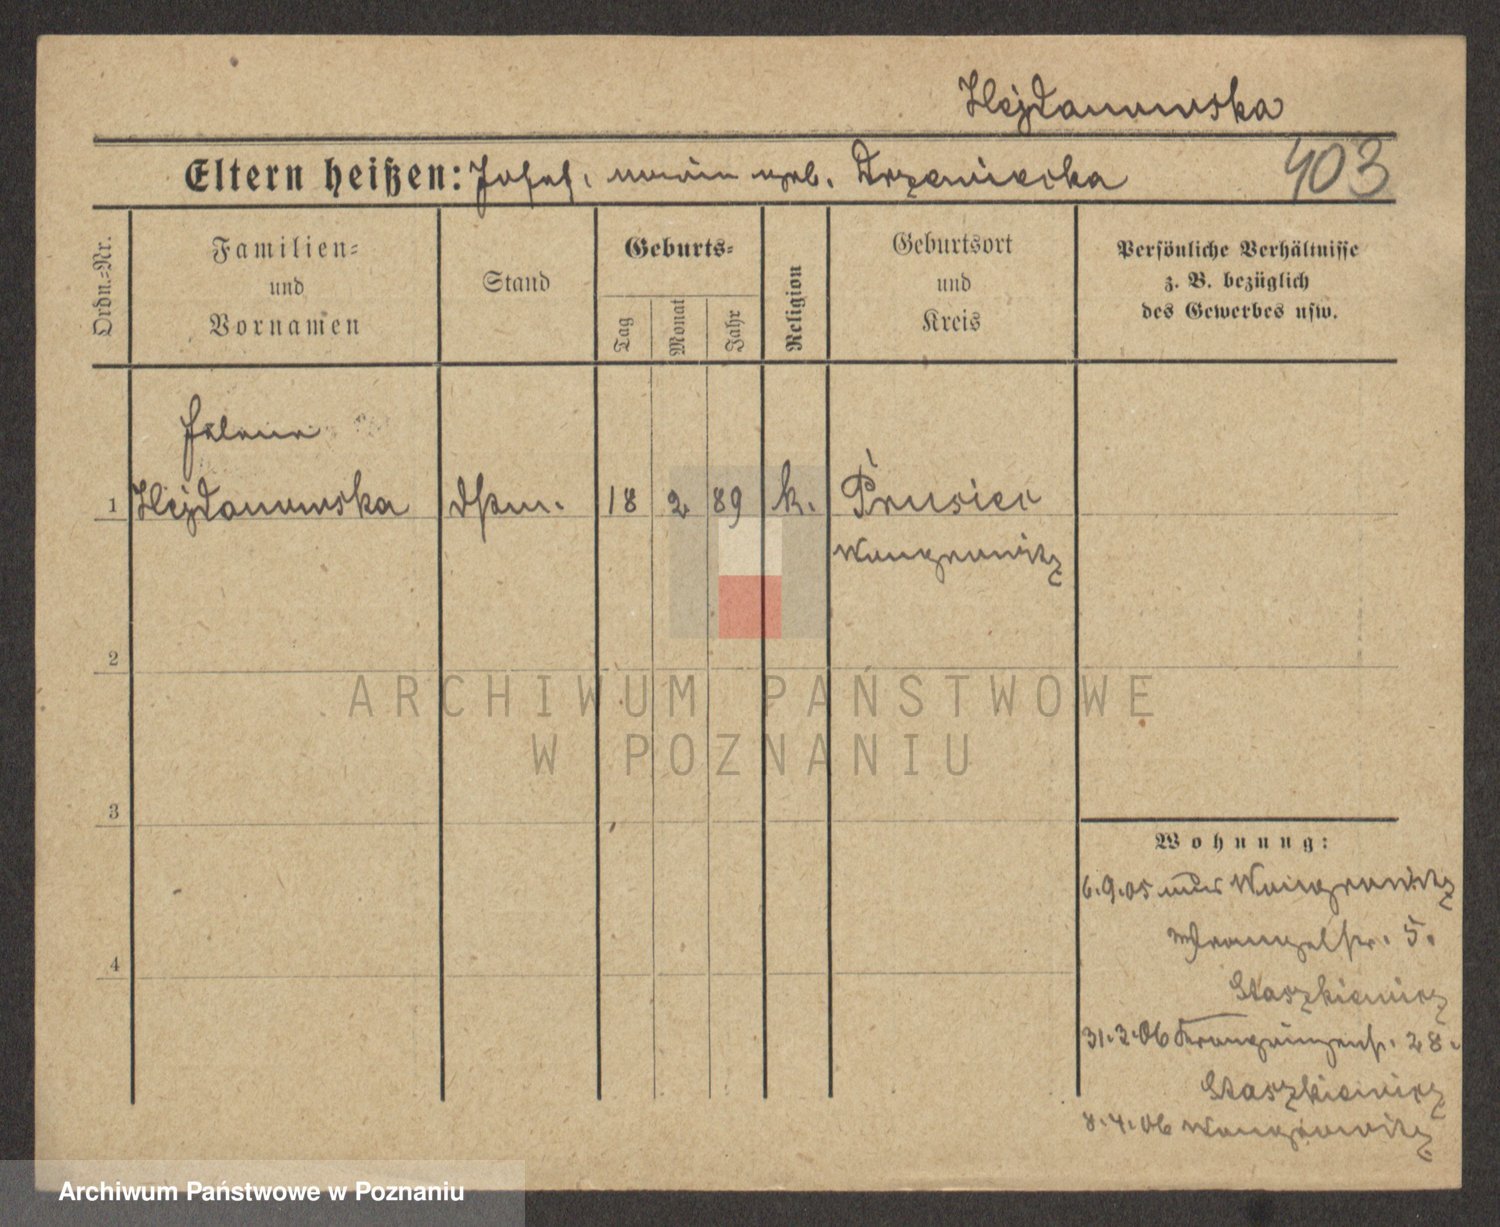 Hejdanowska
Eltern heißen: Josef, Maria geb. Drzewiecka
403
Ordn.-Nr.
Familien-
und
Vornamen
Stand
Geburts-
Tag
Monat
Jahr
Religion
Geburtsort
und
Kreis
Persönliche Verhältnisse
z. B. bezüglich
des Gewerbes usw.
Helene
1 Hejdanowska
18 2 89 k. Prusiec
Wongrowitz
2
3
4
ARCHIWUM PAŃSTWOWE
W POZNANIU
Wohnung:
6.9.05 aus Wongrowitz
Wrangelstr. 5.
Staszkiewicz
31.3.06 Kronprinzenstr. 28.
Staszkiewicz
8.4.06 Wongrowitz
Archiwum Państwowe w Poznaniu